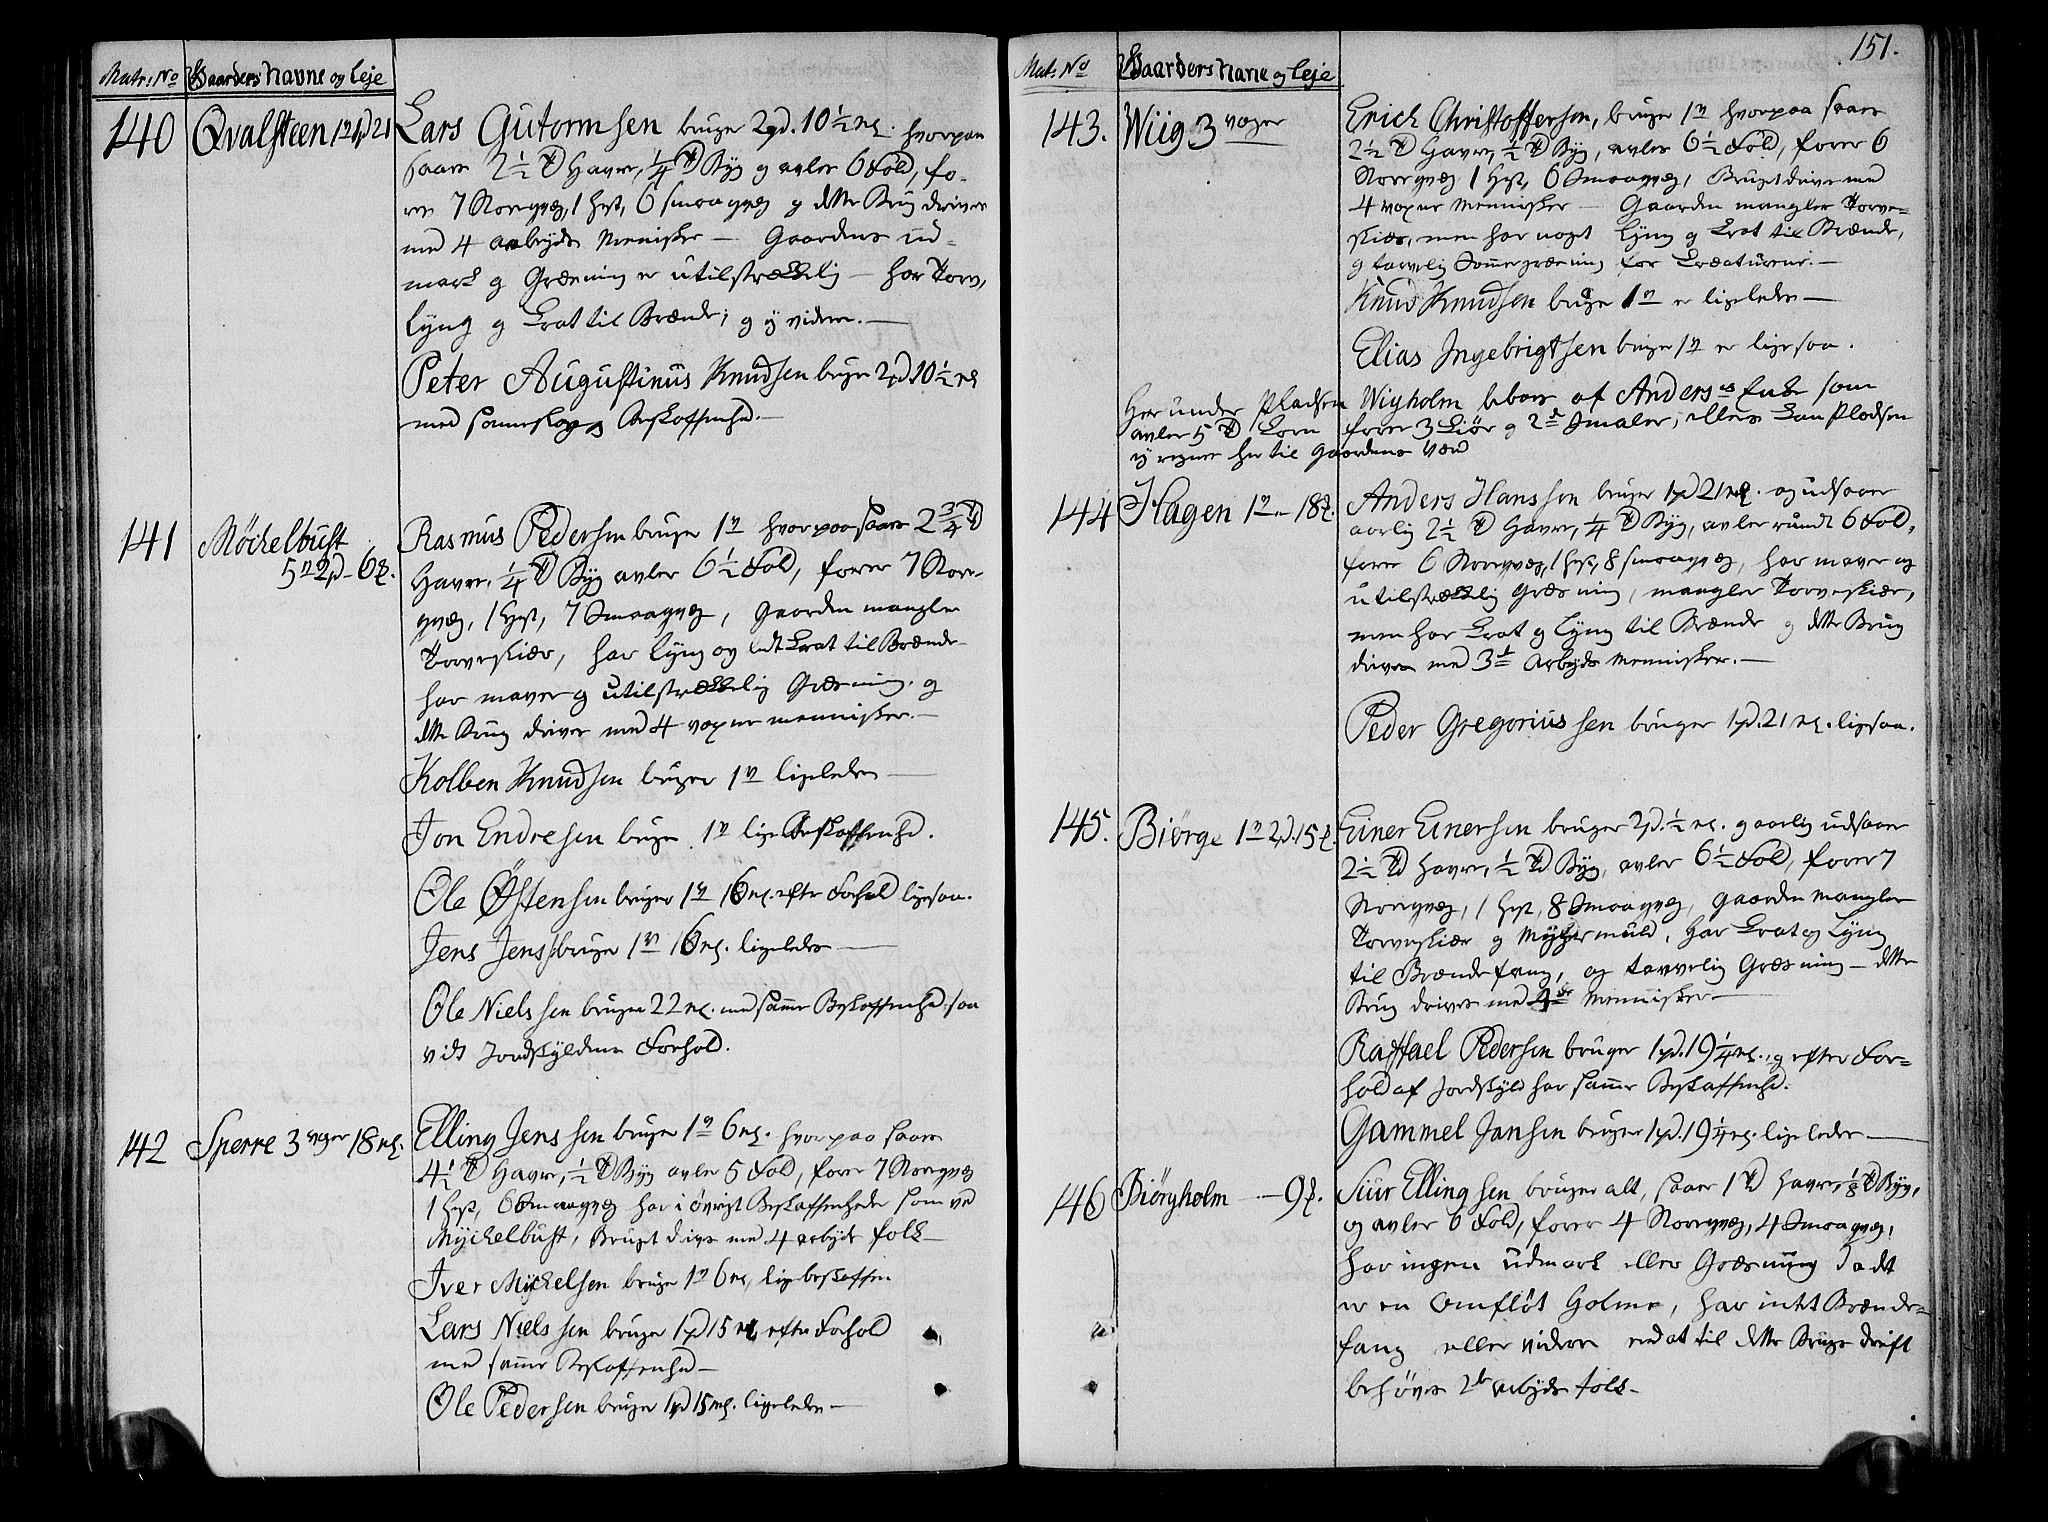 Matr: No Gaarders Navne og Leje
140 Qvalsteen 1 V 1 pd 21
Lars Gutormsen bruger 2 pd. 10 ½ mk. hvorpaa
saaes 2 ½ Td Havre, ¼ Td Byg og avles 6 Fold, fo-
rer 7 Storqvæg, 1 Hest, 6 smaaqvæg og dette Brug drives
med 4 arbeyds Menisker — Gaardens ud-
mark og Græsning er utilstrækkelig — har Torv,
Lyng og Krat til Brænde; og ej videre. —
Peter Augustinus Knudsen bruger 2 pd 10 ½ mk
med samme slags Beskaffenhed. —
141 Möckelbust
5 V 2 pd - 6 mk.
Rasmus Pedersen bruger 1 V hvorpaa saaes 2 ¾ Td
Havre, ¼ Td Byg avles 6 ½ Fold, forer 7 Stor-
qvæg, 1 Hest, 7 Smaaqvæg, Gaarden mangler
Torveskier, har Lyng og lidt Krat til Brænde
har maver og utilstrækkelig Græsning, og
dette Brug drives med 4 voxne mennisker. —
Kolben Knudsen bruger 1 V ligeledes —
Jon Endresen bruger 1 V lige Beskaffenhed.
Ole Östensen bruger 1 V 16 mk. efter Forhold ligesaa.
Jens Jenss bruger 1 V 16 mk. ligeledes —
Ole Nielssen bruger 22 mk. med samme Beskaffenhed saa
vidt Jordskyldens Forhold.
142 Sperre 3 voger 18 mk.
Elling Jenssen bruger 1 V 6 mk. hvorpaa saaes
4 ½ Td Havre, ½ Td Byg avles 5 Fold, forer 7 Storqvæg
1 Hest, 6 Smaaqvæg har i övrigt Beskaffenheder som ved
Myckelbust, Bruget drives med 4 arbeyds folk —
Iver Mickelsen bruger 1 V 6 mk, lige beskaffen
Lars Nielssen bruger 1 pd 15 mk efter Forhold
med samme Beskaffenhed —
Ole Pedersen bruger 1 pd 15 mk. ligeledes —
151.
Mat: No Gaarders Navne og Leje
143. Wiig 3 voger
Erich Christoffersen, bruger 1 V hvorpaa saaes
2 ½ Td Havre, ½ Td Byg, avles 6 ½ Fold, forer 6
Storqvæg 1 Hest, 6 Smaaqvæg, Bruget drives med
4 voxne Mennisker — Gaarden mangler Torve-
skier, men har noget Lyng og Krat til Brænde,
og tarvelig Sommergræsning for Creaturene. —
Knud Knudsen bruger 1 V er ligeledes —
Elias Ingebrigtsen bruger 1 V er ligesaa.
Herunder Pladsen Wigholm beboes af Anders's Enke som
avler 5 Td Korn forer 3 Kiör og 2de Smaler, ellers kan Pladsen
ej regnes her til Gaardens Værd
144 Hagen 1 V - 18 mk.
Anders Hanssen bruger 1 pd 21 mk. og udsaaer
aarlig 2 ½ Td Havre, ¼ Td Byg, avler rundt 6 Fold,
forer 6 Storqvæg, 1 Hest, 8 smaaqvæg, har maver og
utilstrækkelig Græsning, mangler Torveskier,
men har Krat og Lyng til Brænde og dette Brug
drives med 3de Arbeyds Mennisker. —
Peder Gregoriussen bruger 1 pd. 21 mk. ligesaa.
145. Biörge 1 V 2 pd. 15 mk.
Einer Einersen bruger 2 pd. ½ mk. og aarlig udsaaer
2 ½ Td Havre, ½ Td Byg, avler 6 ½ Fold, forer 7
Storqvæg, 1 Hest, 8 Smaaqvæg, Gaarden mangler
Torveskier og Myhrmuld, Har Krat og Lyng
til Brændefang, og tarvelig Græsning — dette
Brug drives med 4de Mennisker —
Raffael Pedersen bruger 1 pd. 19 ¼ mk., og efter For-
hold af Jordskyld har samme Beskaffenhed.
Gammel Jansen bruger 1 pd. 19 ¼ mk. ligeledes —
146 Biörgholm — 9 mk.
Siur Ellingsen bruger alt, saaer 1 Td Havre, ⅛ Td Byg,
og avler 6 Fold, forer 4 Storqvæg, 4 Smaaqvæg,
har ingen udmark eller Græsning da det
er en omflöt Holme, har intet Brænde-
fang eller videre end at til dette Brugs drift
behöves 2de arbeyds folk —